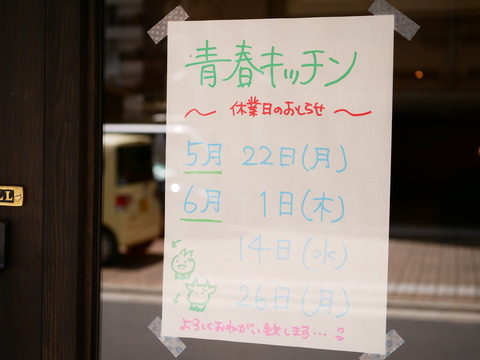 青春キッチン
〜 休業日のおしらせ 〜
5月 22日(月)
6月 1日(木)
14日(水)
26日(月)
よろしくおねがい致します…